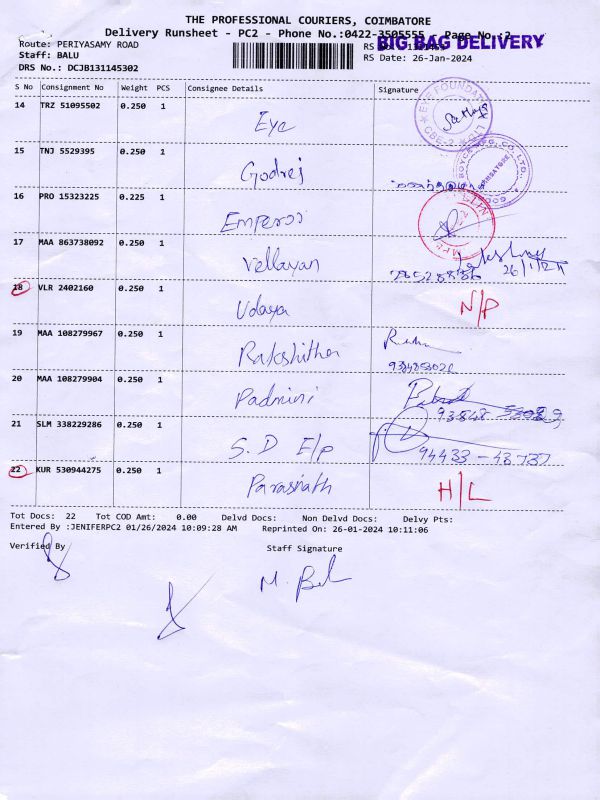 THE PROFESSIONAL COURIERS, COIMBATORE
Delivery Runsheet - PC2 - Phone No.:0422-3505555 - Page No.:2
BIG BAG DELIVERY
Route: PERIYASAMY ROAD
RS No.:
Staff: BALU
RS Date: 26-Jan-2024
DRS No.: DCJB131145302
S No Consignment No Weight PCS Consignee Details Signature
14 TRZ 51095502 0.250 1 Eye
EYE FOUNDAT
CBE-2
15 TNJ 5529395 0.250 1 Godrej
16 PRO 15323225 0.225 1 Emperor
17 MAA 863738092 0.250 1 Vellayan
26/1/24
18 VLR 2402160 0.250 1 Udaya N/P
19 MAA 108279967 0.250 1 Rakshitha
20 MAA 108279904 0.250 1 Padmini
21 SLM 338229286 0.250 1 S.D E/p
94433-48737
22 KUR 530944275 0.250 1 Parasnath H/L
Tot Docs: 22 Tot COD Amt: 0.00 Delvd Docs: Non Delvd Docs: Delvy Pts:
Entered By :JENIFERPC2 01/26/2024 10:09:28 AM Reprinted On: 26-01-2024 10:11:06
Verified By Staff Signature